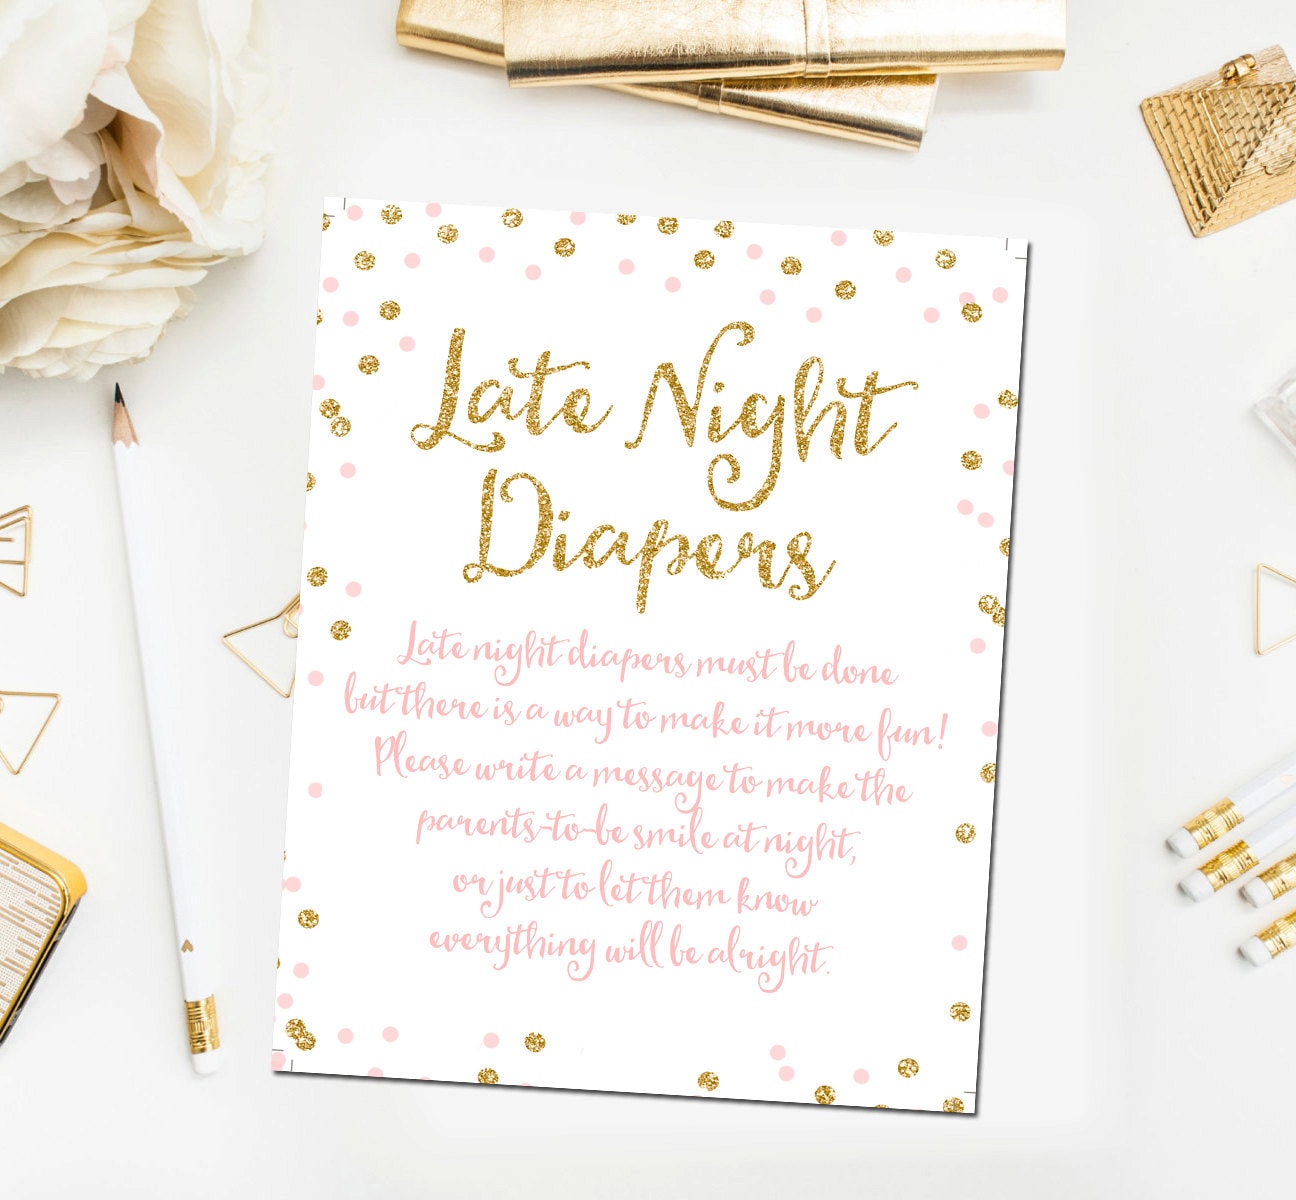 Late Night
Diapers
Late night diapers must be done
but there is a way to make it more fun!
Please write a message to make the
parents-to-be smile at night,
or just to let them know
everything will be alright.